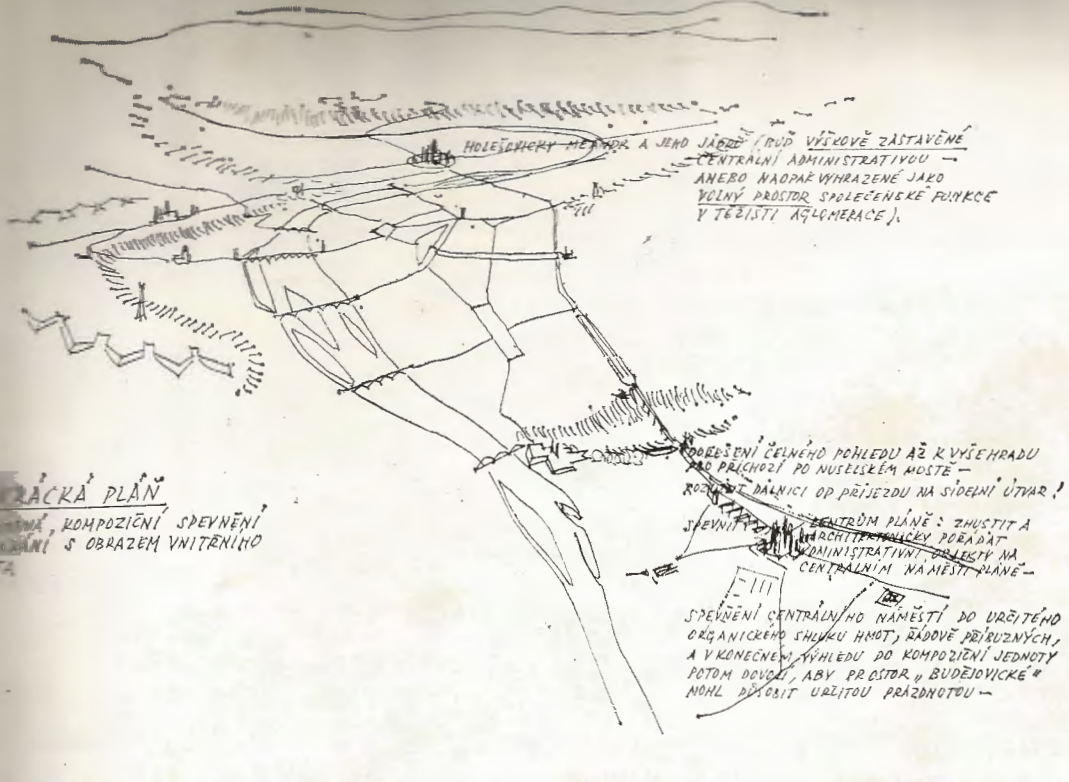 HOLEŠOVICKÝ MEANDR A JEHO JÁDRO (BUĎ VÝŠKOVĚ ZÁSTAVĚNÉ
CENTRÁLNÍ ADMINISTRATIVOU —
ANEBO NAOPAK VYHRAZENÉ JAKO
VOLNÝ PROSTOR SPOLEČENSKÉ FUNKCE
V TĚŽIŠTI AGLOMERACE).
PLÁŇ
KOMPOZIČNÍ SPEVNĚNÍ
S OBRAZEM VNITŘNÍHO
DOŘEŠENÍ ČELNÉHO POHLEDU AŽ K VYŠEHRADU
PRO PŘÍCHOZÍ PO NUSELSKÉM MOSTĚ —
DÁLNICI OD PŘÍJEZDU NA SÍDELNÍ ÚTVAR!
SPEVNIT CENTRUM PLÁNĚ: ZHUSTIT A
ARCHITEKTONICKY POŘÁDAT
ADMINISTRATIVNÍ OBJEKTY NA
CENTRÁLNÍM NÁMĚSTÍ PLÁNĚ —
SPEVNĚNÍ CENTRÁLNÍHO NÁMĚSTÍ DO URČITÉHO
ORGANICKÉHO SHLUKU HMOT, ŘÁDOVĚ PŘÍBUZNÝCH,
A V KONEČNÉM VÝHLEDU DO KOMPOZIČNÍ JEDNOTY
POTOM DOVOLÍ, ABY PROSTOR „BUDĚJOVICKÉ"
MOHL PŮSOBIT URČITOU PRÁZDNOTOU —